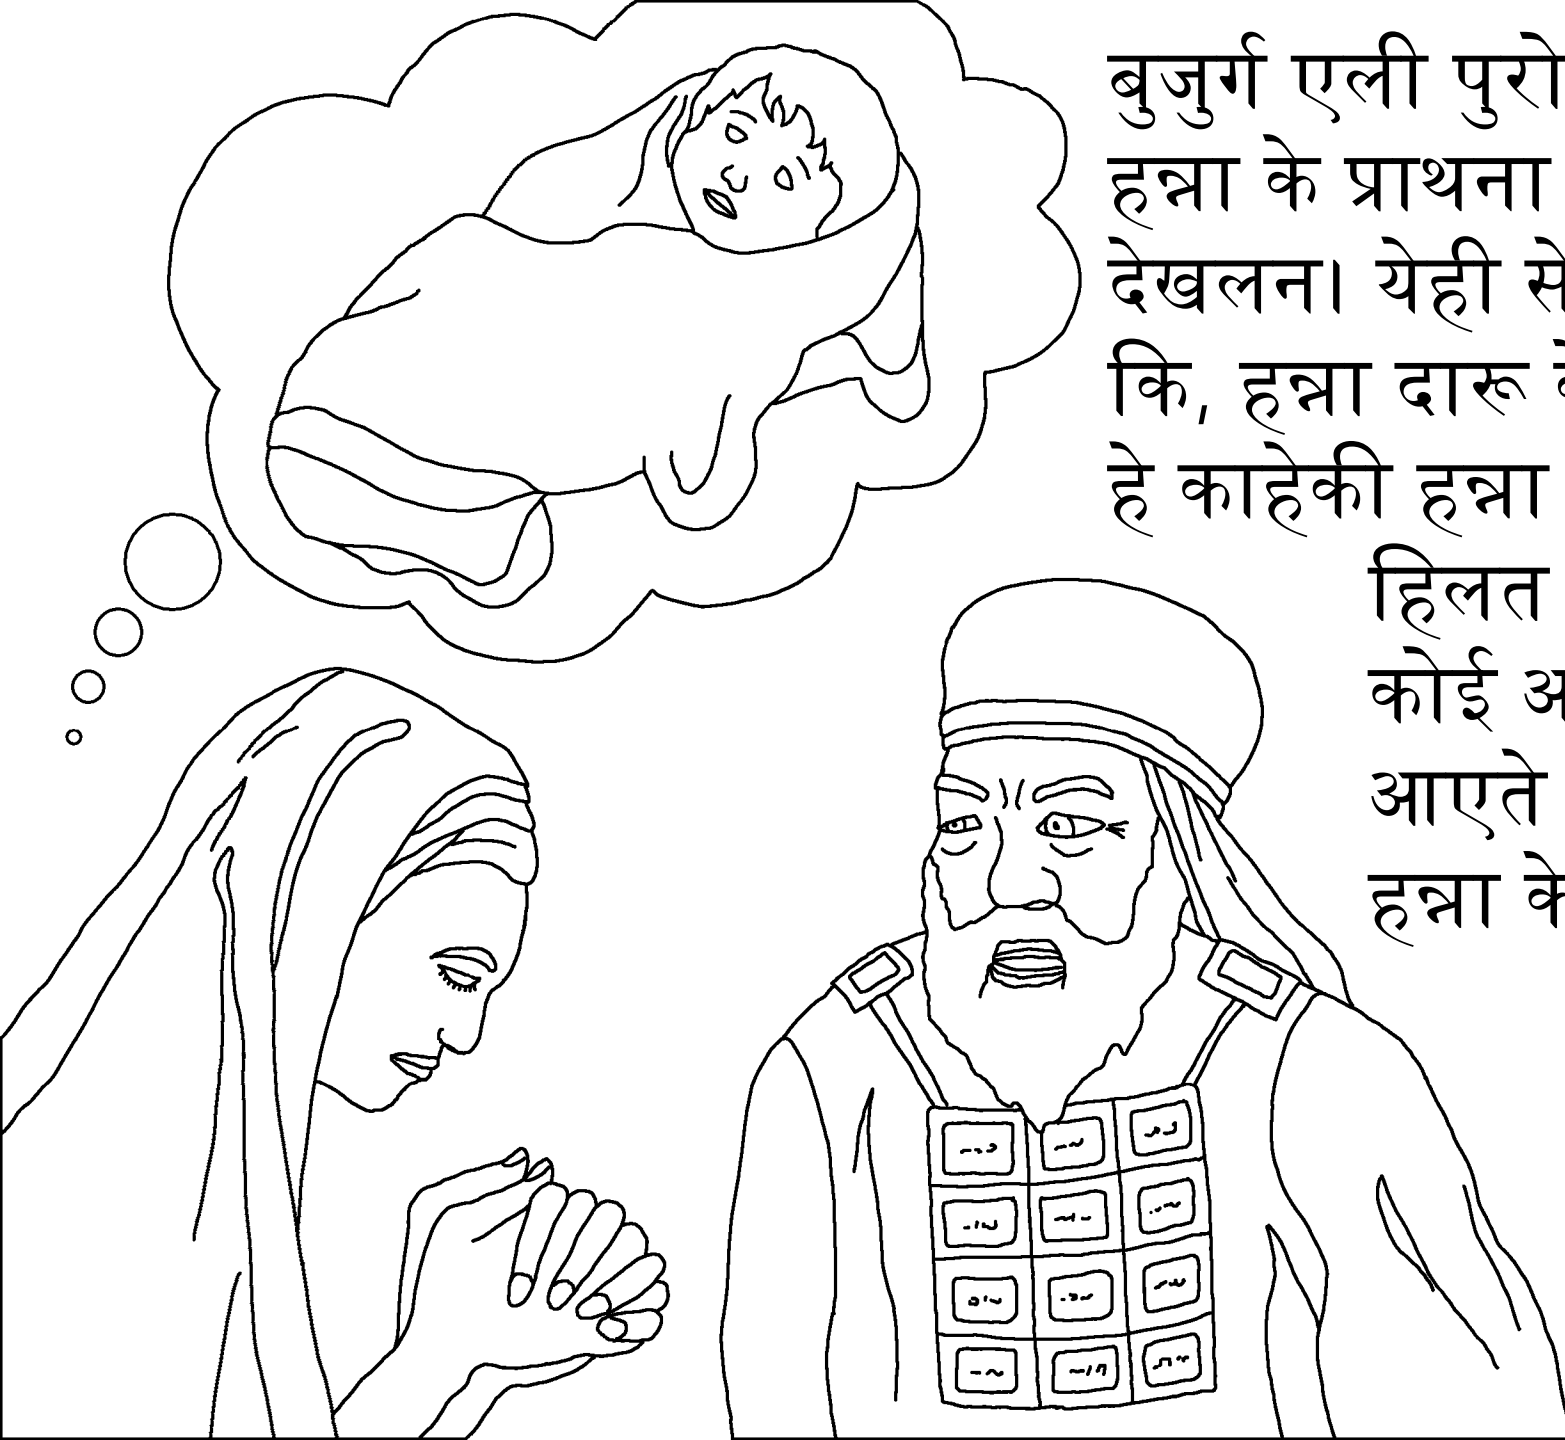 बुजुर्ग एली
हन्ना के प्राथना
देखलन। येही
कि, हन्ना दारू
हे काहेकी हन्ना
हिलत
कोई
आएते
हन्ना